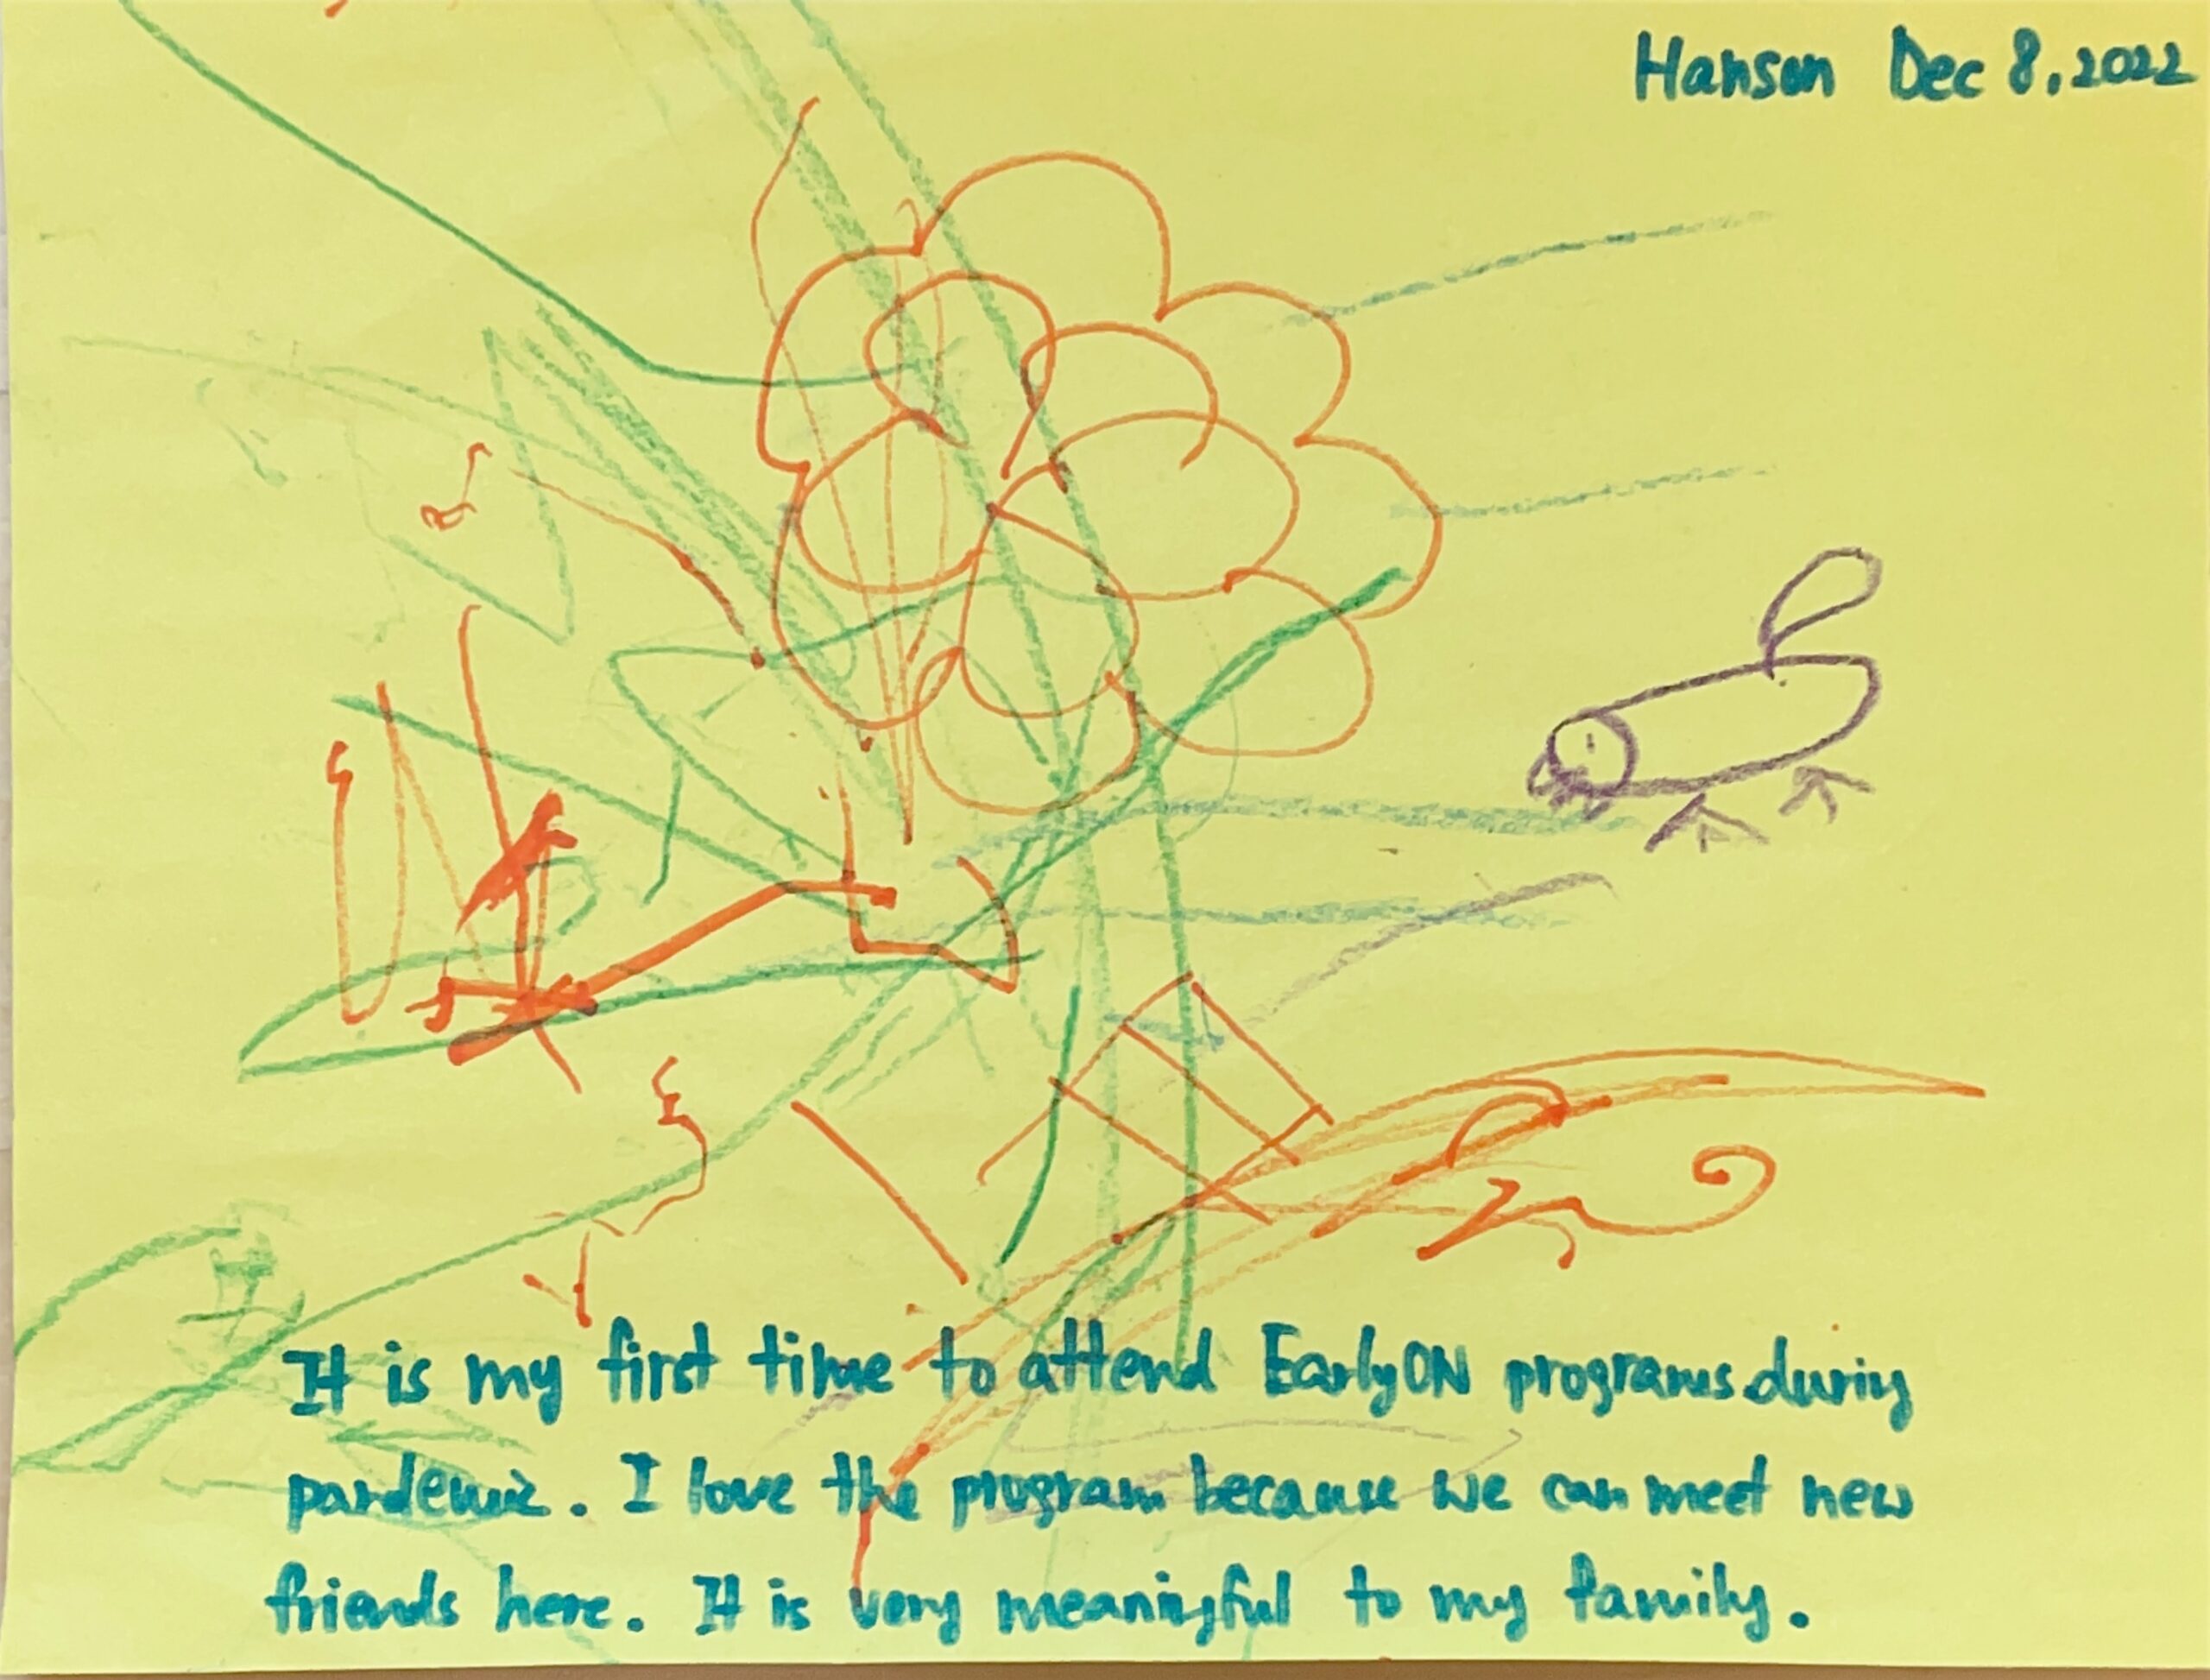 Hanson Dec 8, 2022
It is my first time to attend EarlyON programs during
pandemic. I love the program because we can meet new
friends here. It is very meaningful to my family.